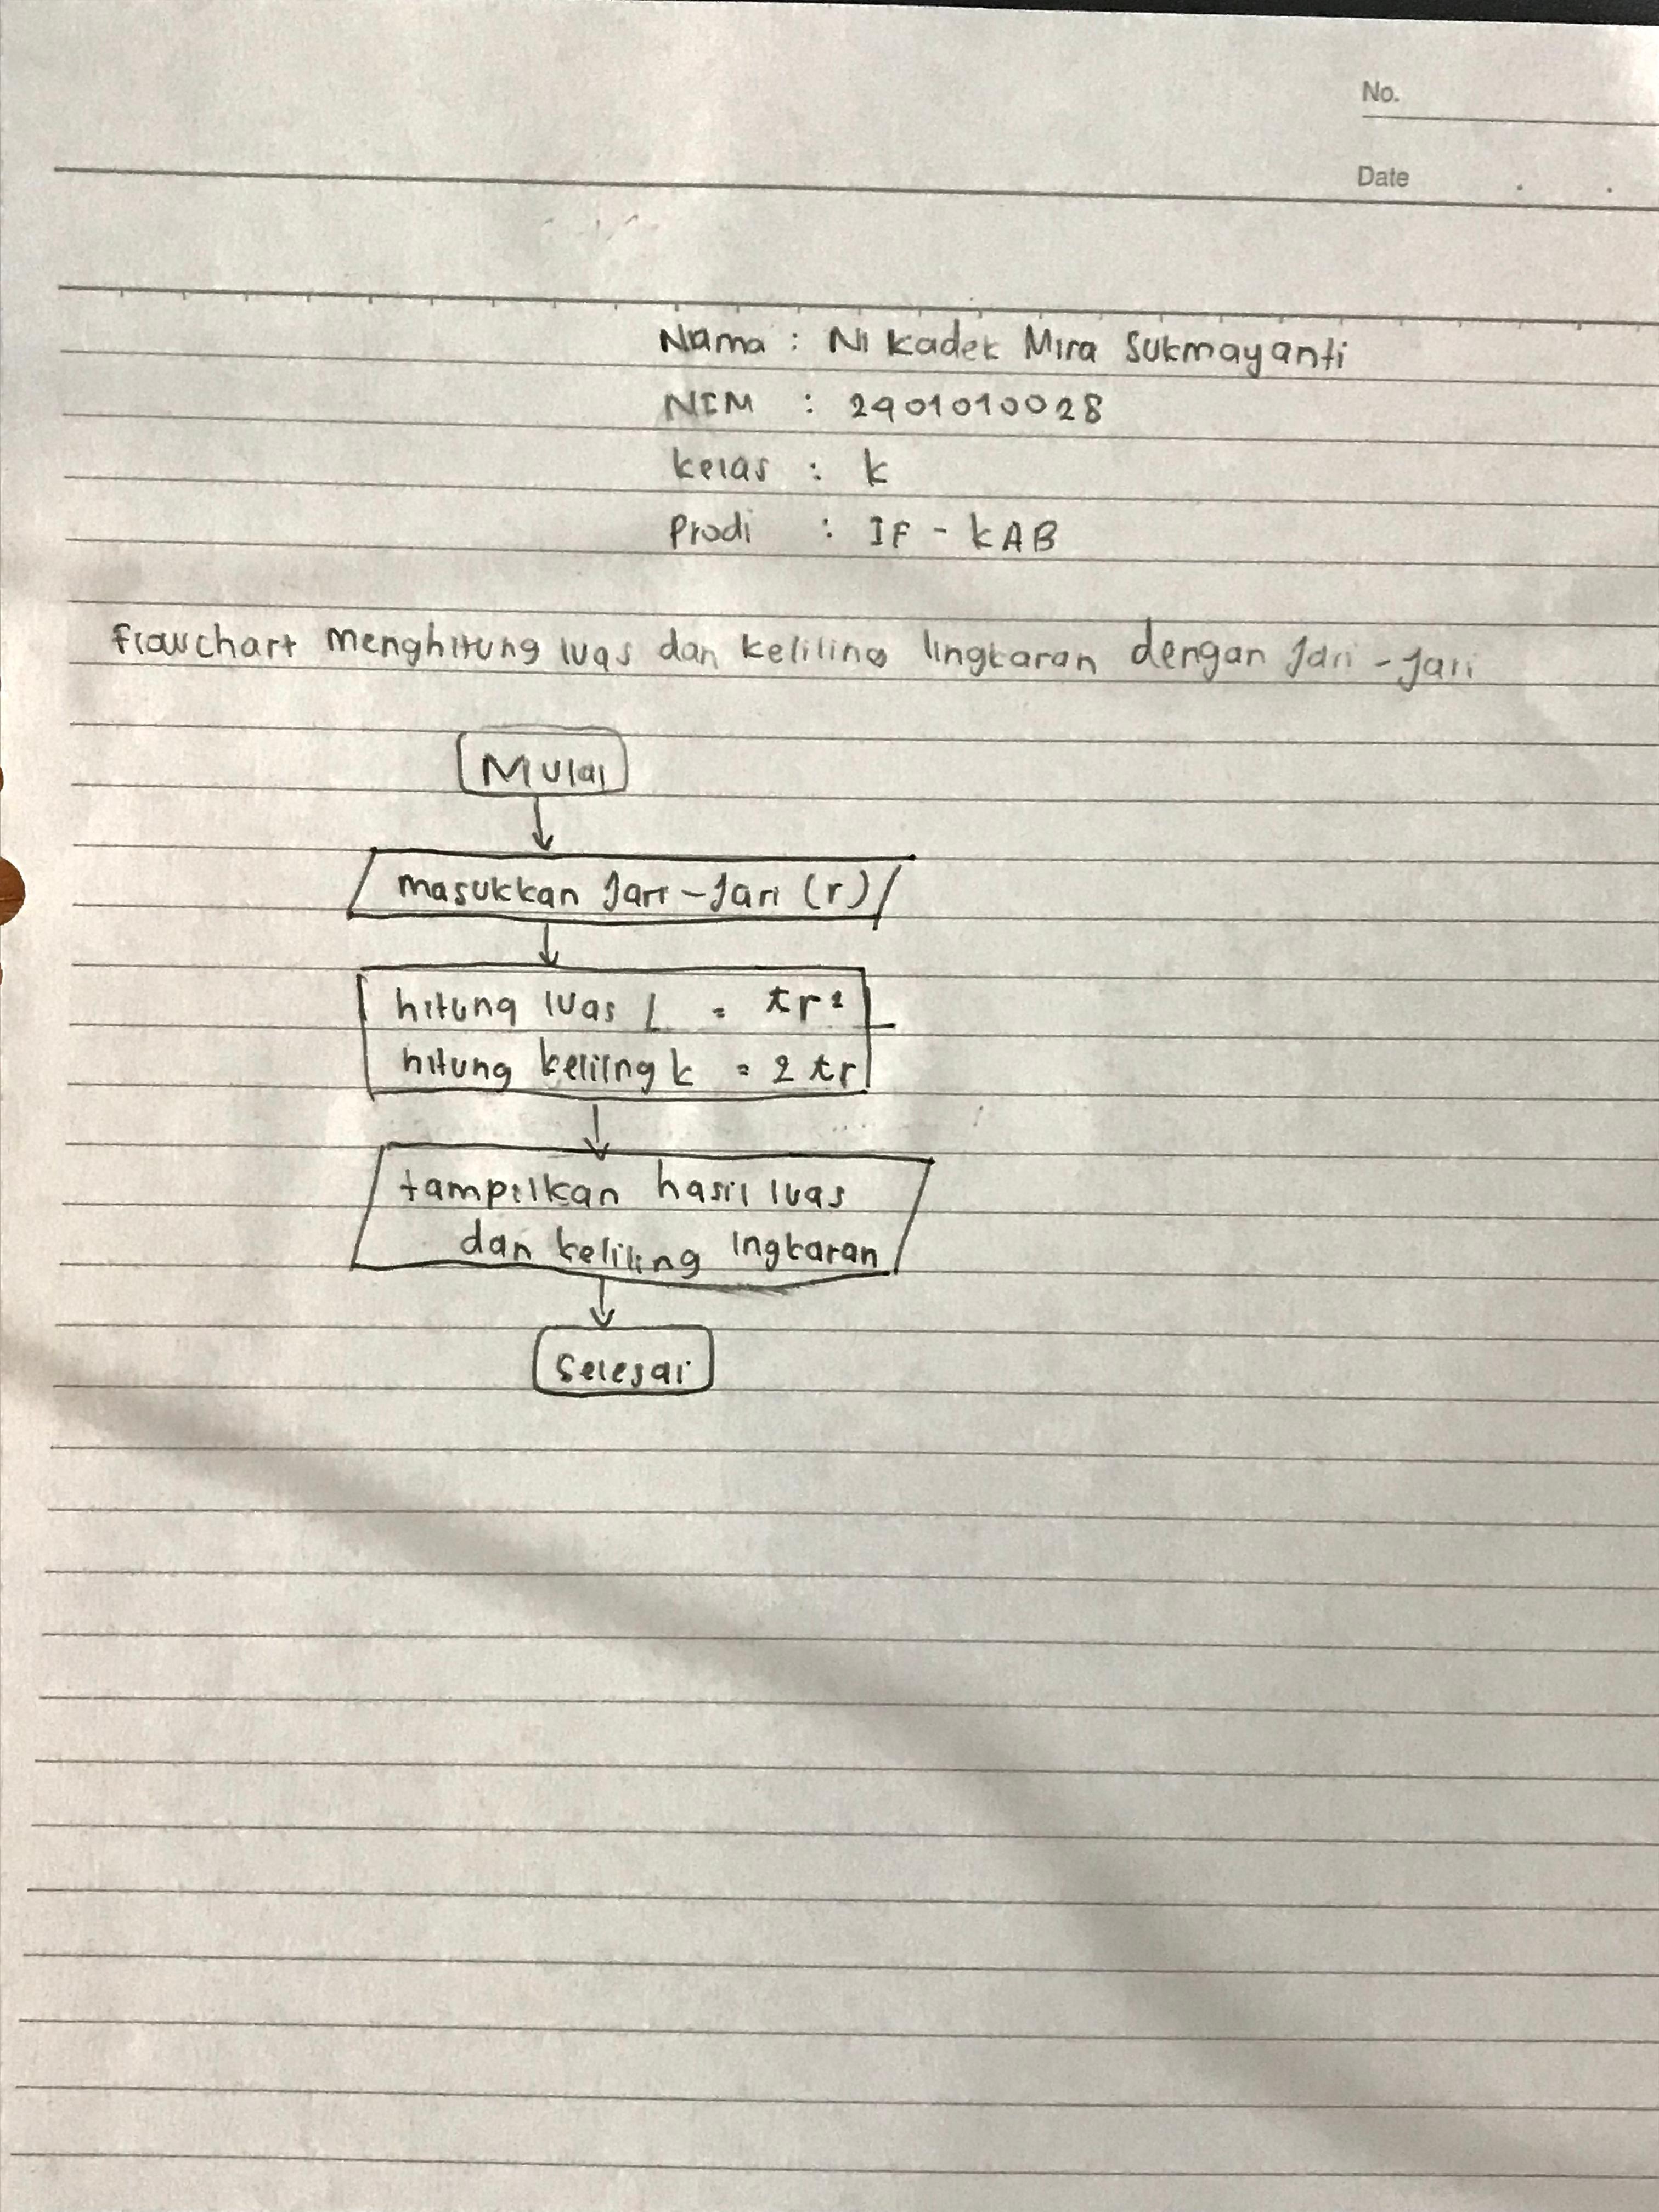 No.
Date
Nama : Ni Kadek Mira Sukmayanti
NIM : 2901010028
kelas : k
Prodi : IF - KAB
flowchart menghitung luas dan keliling lingkaran dengan Jari - Jari
Mulai
masukkan Jari - Jari (r)
hitung luas L = πr²
hitung kelilng k = 2 πr
tampilkan hasil luas
dan keliling lngkaran
Selesai